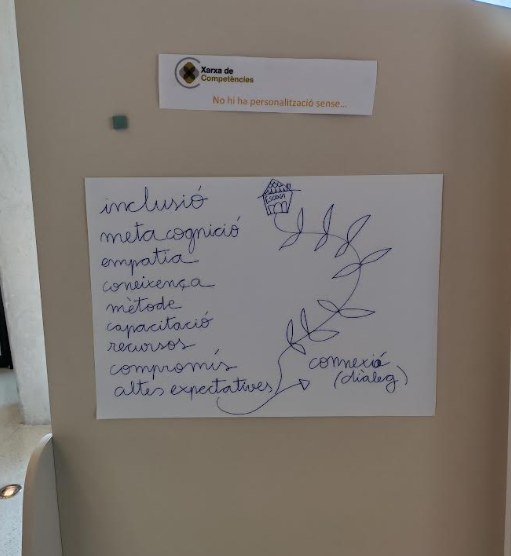 Xarxa de
Competències
No hi ha personalització sense...
inclusió
metacognició
empatia
coneixença
mètode
capacitació
recursos
compromís
altes expectatives
ESCOLA
connexió
(diàleg)